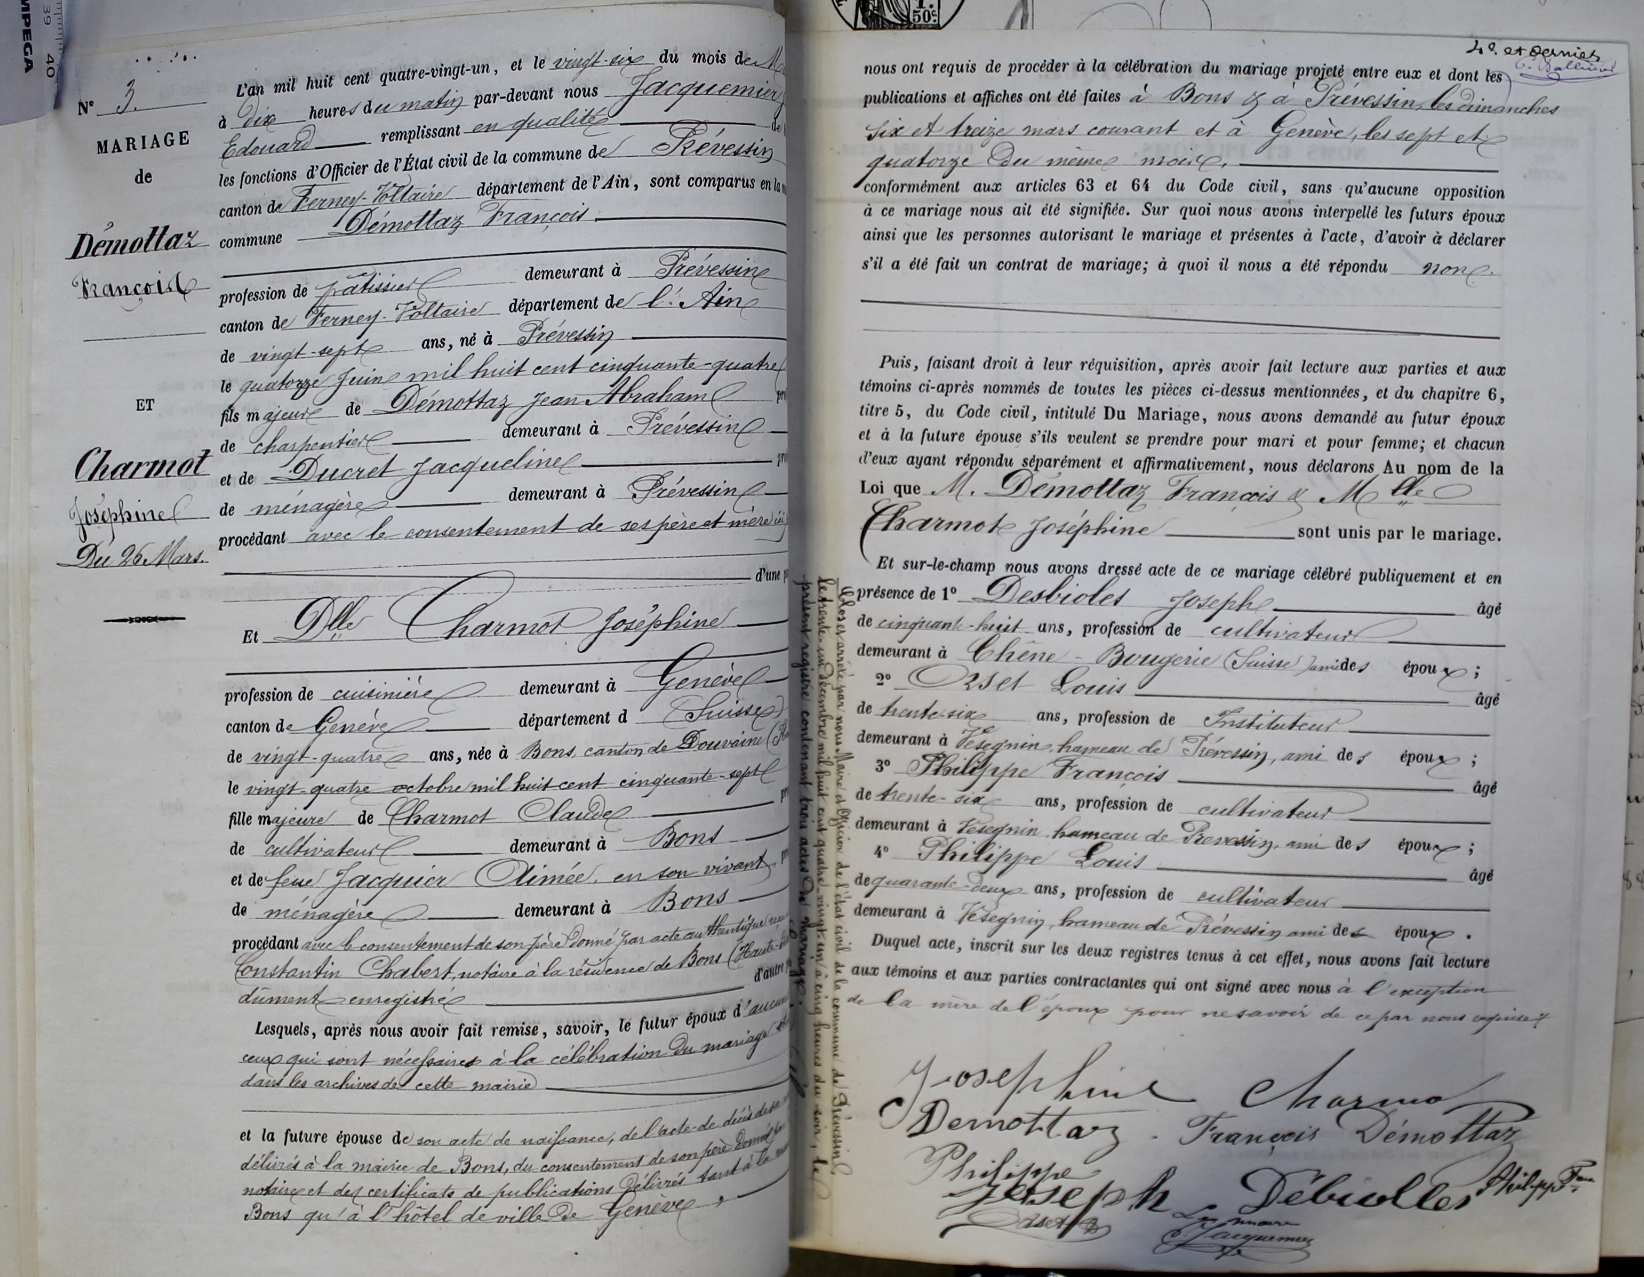 N° 3.
MARIAGE
de
Démottaz
François
ET
Charmot
Joséphine
Du 26 Mars.
L'an mil huit cent quatre-vingt-un, et le vingt-six du mois de
à dix heures du matin par-devant nous Jacquemier
Edouard remplissant en qualité
les fonctions d'Officier de l'État civil de la commune de Prévessin
canton de Ferney-Voltaire département de l'Ain, sont comparus en la
commune Démottaz François
profession de pâtissier demeurant à Prévessin
canton de Ferney-Voltaire département de l'Ain
de vingt-sept ans, né à Prévessin
le quatorze Juin mil huit cent cinquante-quatre
fils majeur de Démottaz Jean Abraham
de charpentier demeurant à Prévessin
et de Ducret Jacqueline
de ménagère demeurant à Prévessin
procédant avec le consentement de ses père et mère ici
d'une
Et Dlle Charmot Joséphine
profession de cuisinière demeurant à Genève
canton de Genève département d (Suisse)
de vingt-quatre ans, née à Bons, canton de Douvaine
le vingt-quatre octobre mil huit cent cinquante-sept
fille majeure de Charmot Claude
de cultivateur demeurant à Bons
et de feue Jacquier Aimée, en son vivant
de ménagère demeurant à Bons
procédant avec le consentement de son père donné par acte authentique
Constantin Chabert, notaire à la résidence de Bons
dûment enregistré d'autre
Lesquels, après nous avoir fait remise, savoir, le futur époux d'aucun
ceux qui sont nécessaires à la célébration du mariage
dans les archives de cette mairie
et la future épouse de son acte de naissance, de l'acte de décès de
délivrés à la mairie de Bons, du consentement de son père donné
notaire et des certificats de publications délivrés tant à la
Bons qu'à l'hôtel de ville de Genève,
Clos et arrêté par nous Maire et Officier de l'état civil de la commune de Prévessin,
le trente-un décembre mil huit cent quatre-vingt-un à cinq heures du soir, le
présent registre contenant trois actes de mariage.
50c
4e et dernier
nous ont requis de procéder à la célébration du mariage projeté entre eux et dont les
publications et affiches ont été faites à Bons & à Prévessin, les dimanches
six et treize mars courant et à Genève, les sept et
quatorze du même mois.
conformément aux articles 63 et 64 du Code civil, sans qu'aucune opposition
à ce mariage nous ait été signifiée. Sur quoi nous avons interpellé les futurs époux
ainsi que les personnes autorisant le mariage et présentes à l'acte, d'avoir à déclarer
s'il a été fait un contrat de mariage; à quoi il nous a été répondu non.
Puis, faisant droit à leur réquisition, après avoir fait lecture aux parties et aux
témoins ci-après nommés de toutes les pièces ci-dessus mentionnées, et du chapitre 6,
titre 5, du Code civil, intitulé Du Mariage, nous avons demandé au futur époux
et à la future épouse s'ils veulent se prendre pour mari et pour femme; et chacun
d'eux ayant répondu séparément et affirmativement, nous déclarons Au nom de la
Loi que M. Démottaz François & Mlle
Charmot Joséphine sont unis par le mariage.
Et sur-le-champ nous avons dressé acte de ce mariage célébré publiquement et en
présence de 1° Desbioles Joseph âgé
de cinquante-huit ans, profession de cultivateur
demeurant à Chêne-Bougerie (Suisse) ami des époux;
2° Orset Louis âgé
de trente-six ans, profession de Instituteur
demeurant à Vésegnin, hameau de Prévessin, ami des époux;
3° Philippe François âgé
de trente-six ans, profession de cultivateur
demeurant à Vésegnin hameau de Prévessin, ami des époux;
4° Philippe Louis âgé
de quarante-deux ans, profession de cultivateur
demeurant à Vésegnin, hameau de Prévessin ami des époux.
Duquel acte, inscrit sur les deux registres tenus à cet effet, nous avons fait lecture
aux témoins et aux parties contractantes qui ont signé avec nous à l'exception
de la mère de l'époux pour ne savoir de ce par nous requise
Josephine Charmo
Demottaz François Démottaz
Philippe
Joseph Débiolles Philipp
Orset
Le maire
Jacquemier